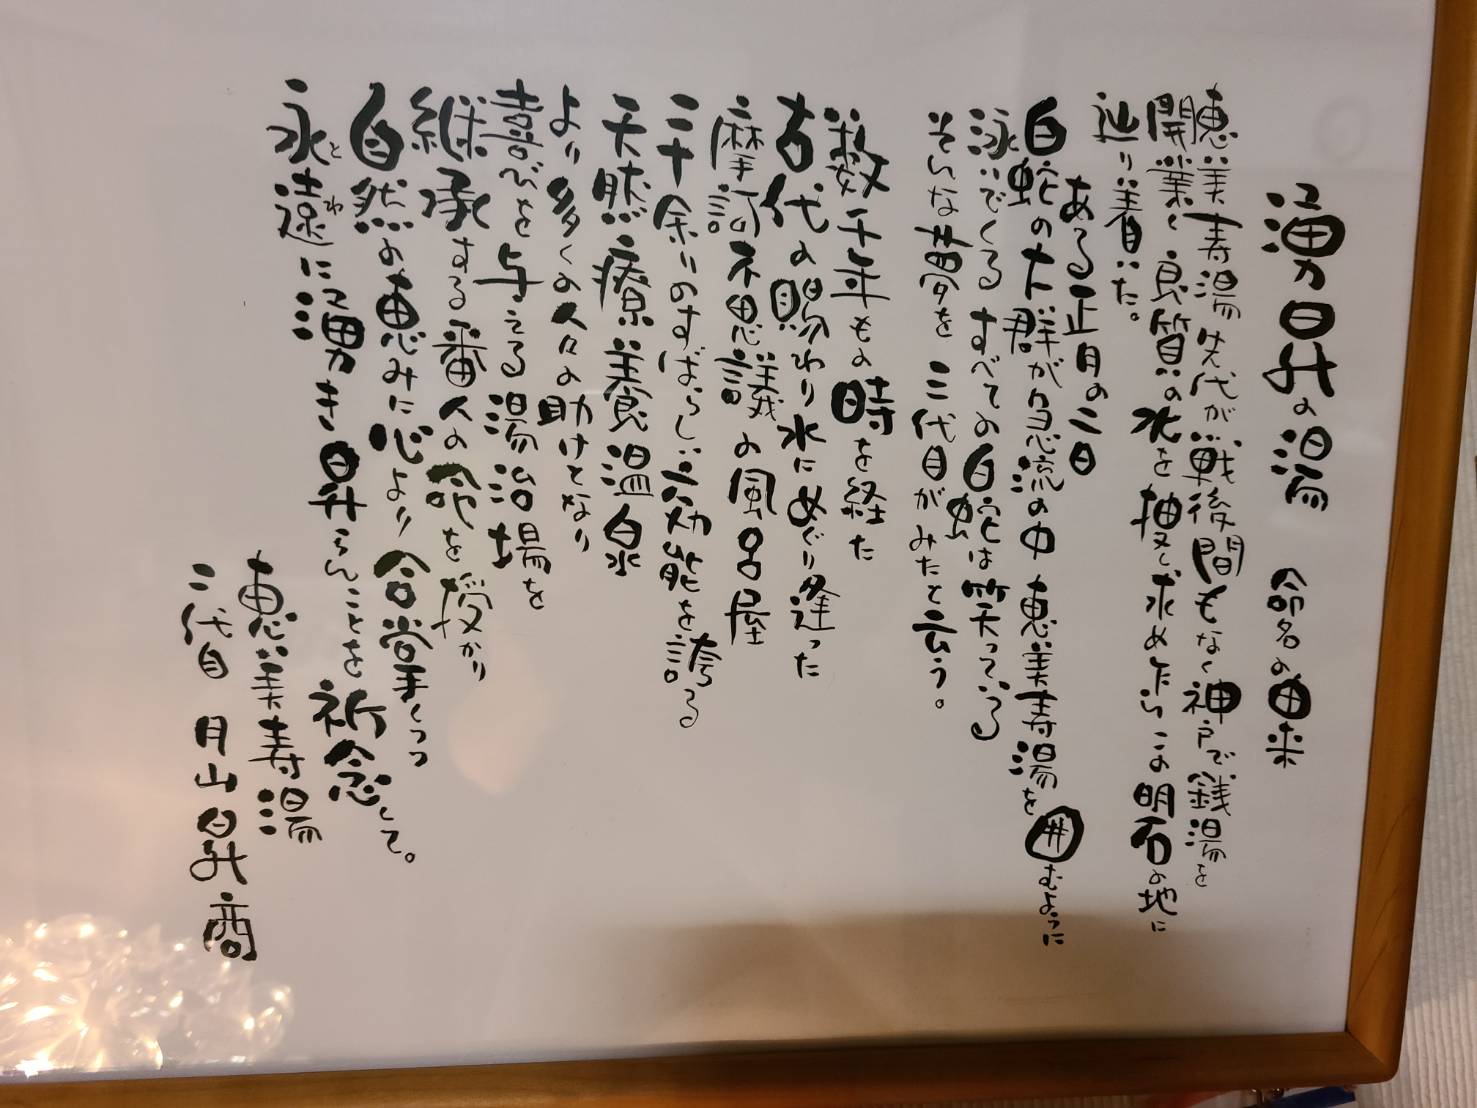 湧昇の湯 命名の由来
恵美寿湯先代が戦後間もなく神戸で銭湯を
開業し良質の水を捜し求めたらこの明石の地に
辿り着いた。
ある正月の二日
白蛇の大群が急流の中 恵美寿湯を囲むように
泳いでくる すべての白蛇は笑っている
そんな夢を 三代目がみたと云う。
数千年もの時を経た
古代の賜わり水にめぐり逢った
摩訶不思議の風呂屋
二千余りのすばらしい効能を誇る
天然療養温泉
より多くの人々の助けとなり
喜びを与える湯治場を
継承する番人の命を授かり
自然の恵みに心より合掌しつつ
永遠に湧き昇らんことを祈念して。
とわ
恵美寿湯
三代目 月山昇商